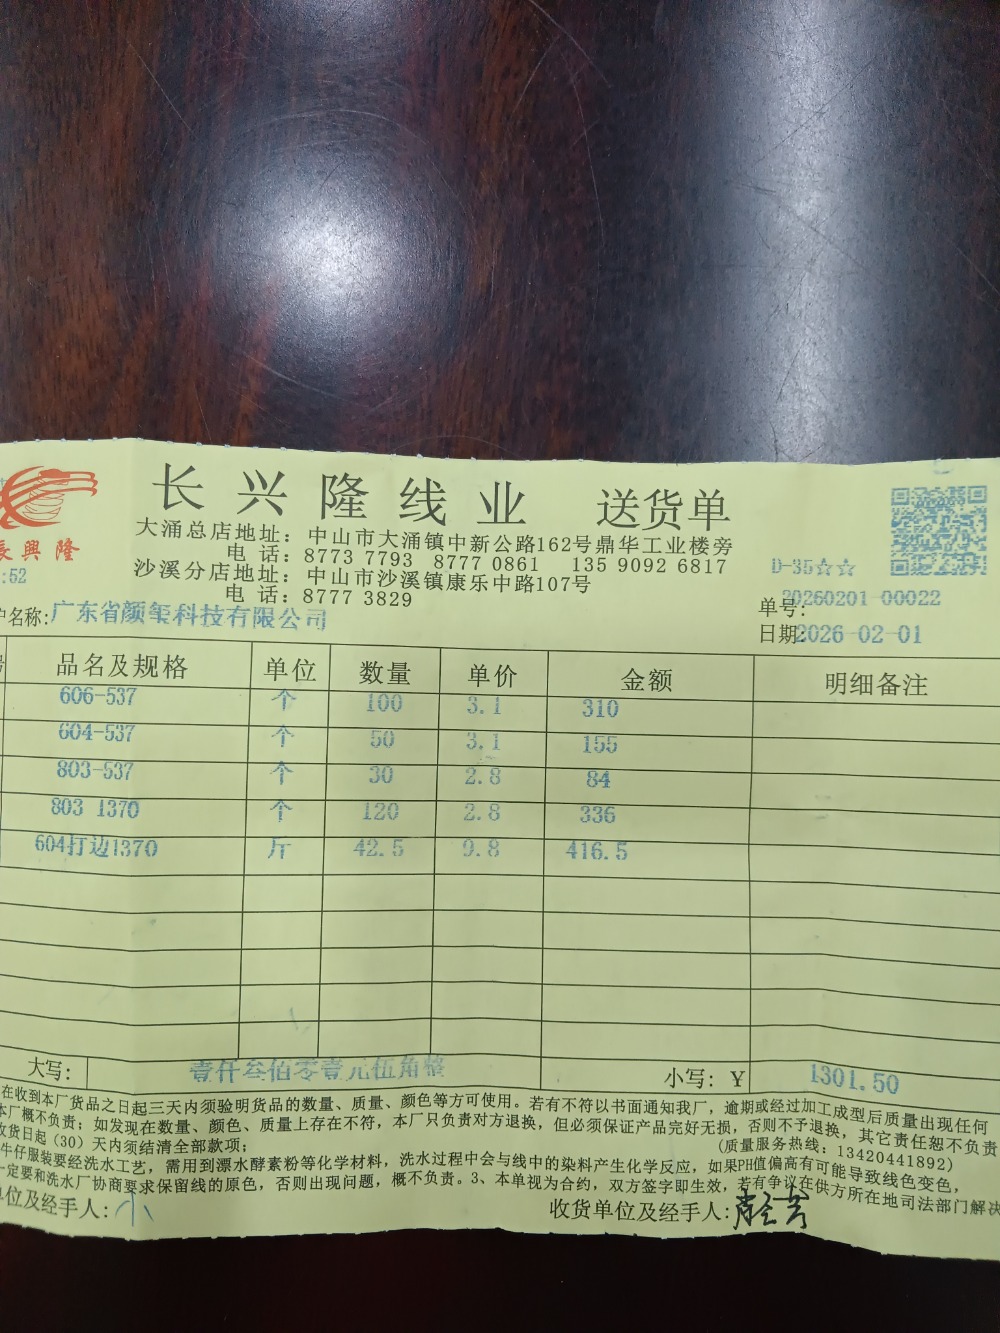 长兴隆线业 送货单
大涌总店地址：中山市大涌镇中新公路162号鼎华工业楼旁
电 话：8773 7793 8777 0861 135 9092 6817
沙溪分店地址：中山市沙溪镇康乐中路107号
电 话：8777 3829
長興隆
:52
D-35☆☆
单号：20260201-00022
户名称：广东省颜玺科技有限公司
日期：2026-02-01
品名及规格 单位 数量 单价 金额 明细备注
606-537 个 100 3.1 310
604-537 个 50 3.1 155
803-537 个 30 2.8 84
803 1370 个 120 2.8 336
604打边1370 斤 42.5 9.8 416.5
大写： 壹仟叁佰零壹元伍角整 小写：￥ 1301.50
在收到本厂货品之日起三天内须验明货品的数量、质量、颜色等方可使用。若有不符以书面通知我厂，逾期或经过加工成型后质量出现任何
本厂概不负责；如发现在数量、颜色、质量上存在不符，本厂只负责对方退换，但必须保证产品完好无损，否则不予退换，其它责任恕不负责
收货日起（30）天内须结清全部款项； （质量服务热线：13420441892）
牛仔服装要经洗水工艺，需用到漂水酵素粉等化学材料，洗水过程中会与线中的染料产生化学反应，如果PH值偏高有可能导致线色变色，
一定要和洗水厂协商要求保留线的原色，否则出现问题，概不负责。3、本单视为合约，双方签字即生效，若有争议在供方所在地司法部门解决
单位及经手人：小 收货单位及经手人：